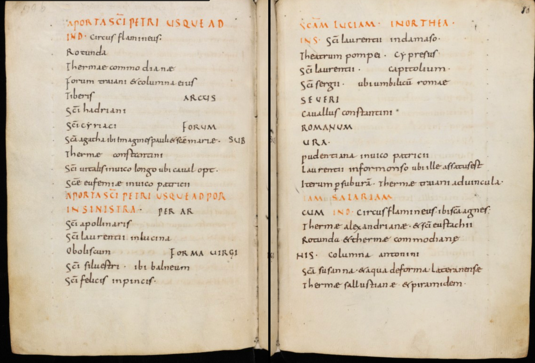 APORTASCĪ PETRI USQUE AD
IND. Circus flamineus.
Rotunda
Thermae commodianæ
Forum traiani & columna eius
Tiberis ARCUS
Scī hadriani
Scī cyriaci FORUM
Scā agatha ibi imagines pauli & scæ mariæ. SUB
Thermæ constantini
Scī uitalis inuico longo ubi caual. opt.
Scæ eufemiæ inuico patricii
APORTASCĪ PETRI USQUE AD POR
IN SINISTRA. PER AR
Scī apollinaris
Scī laurentii inlucina
Oboliscum FORMA UIRGI
Scī siluestri. ibi balneum
Scī felicis inpincis.
80
SCAM LUCIAM. INORTHEA.
INS. Scī laurentii indamaso.
Theatrum pompei. Cypresus
Scī laurentii. capitolium.
Scī sergii. ubi umbilicū romæ
SEUERI
Cauallus constantini
ROMANUM
URA.
pudentiana inuico patricii
Laurentii informonso ubi ille assatus est
Iterum p suburā. Thermæ traiani aduincula.
TAM SALARIAM
CUM IND. Circus flamineus. ibi scā agnes.
Thermæ alexandrianæ & scī eustachii
Rotunda & thermæ commodianæ
NIS. Columna antonini
Scā susanna & aqua deforma lateranense
Thermæ sallustianæ & piramidem.